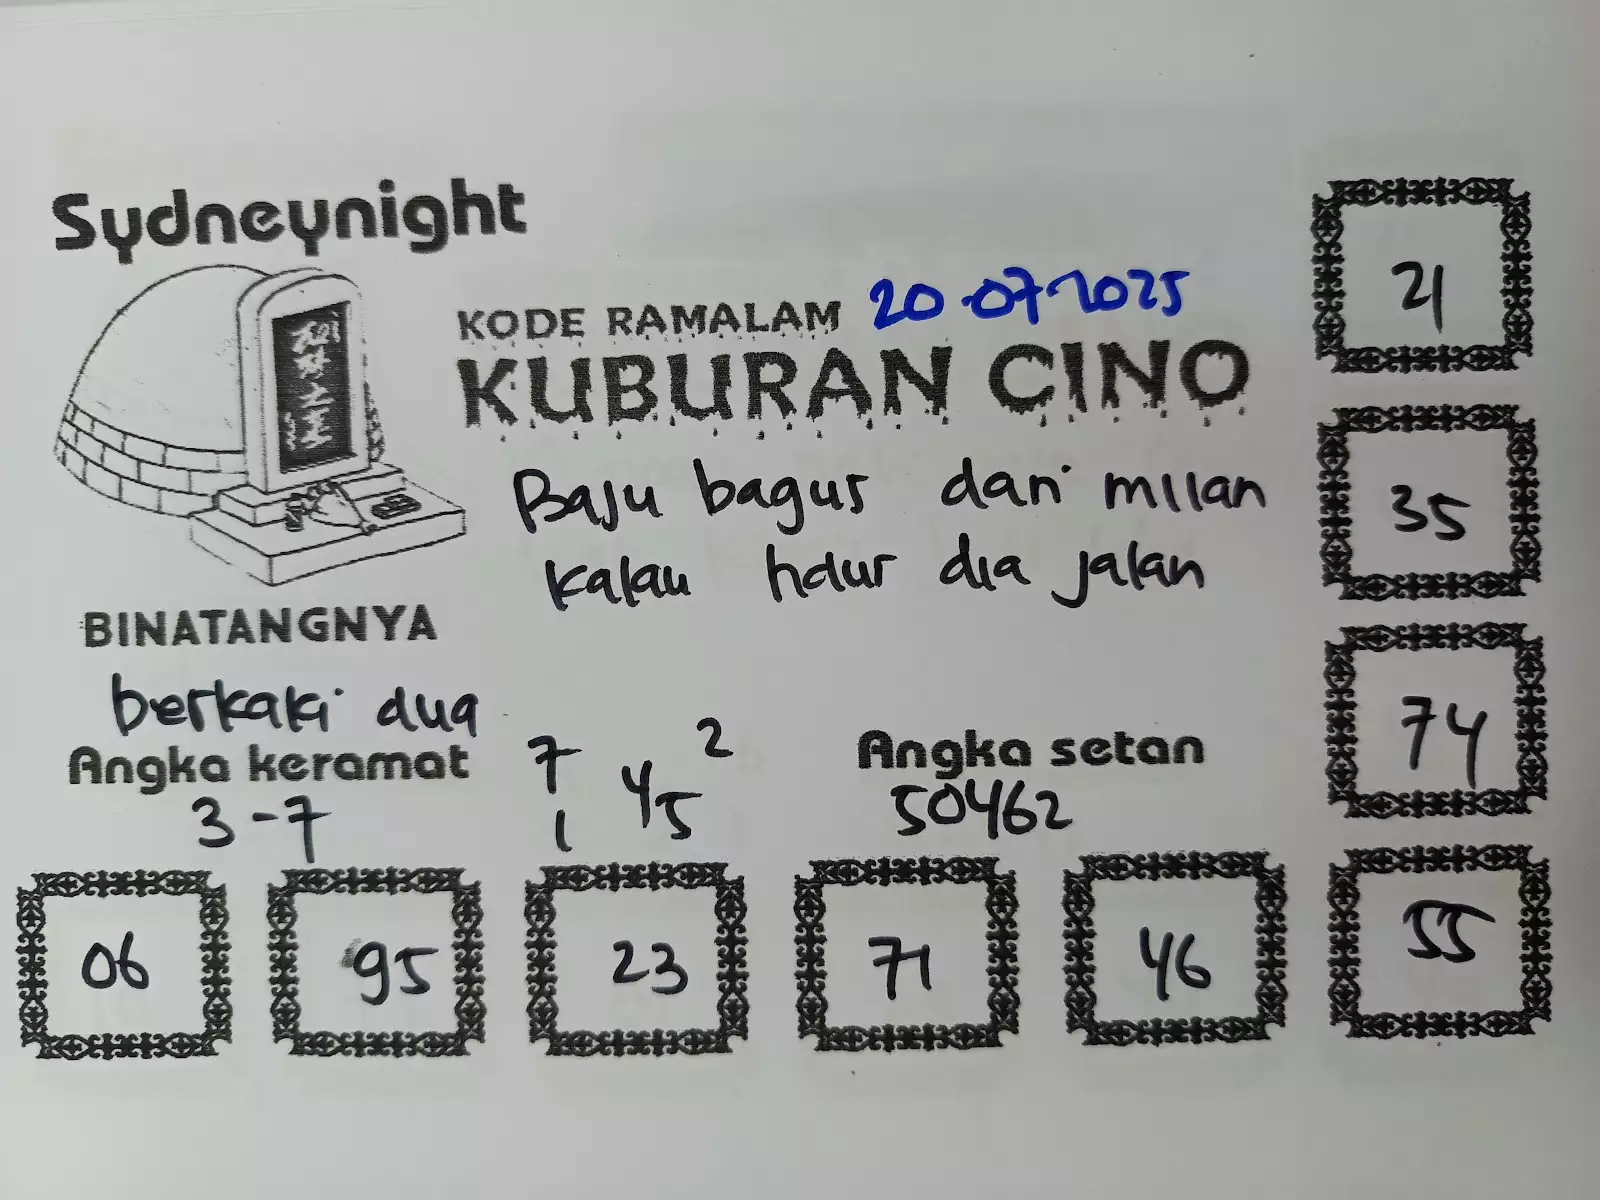 Sydneynight
KODE RAMALAM 20-07-2025
KUBURAN CINO
Baju bagus dari milan
kalau hdur dia jalan
BINATANGNYA
berkaki dua
Angka keramat
3-7
7 4 2
1 5
Angka setan
50462
21
35
74
55
06 95 23 71 46